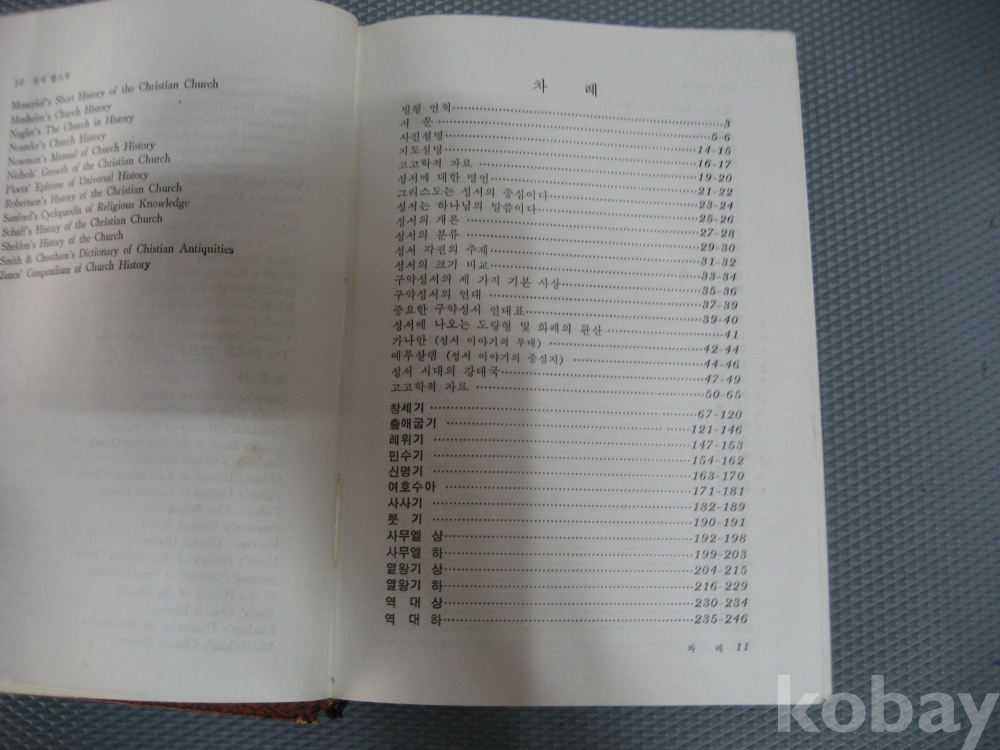 10 성서 핸드북
Moncrief's Short History of the Christian Church
Mosheim's Church History
Nagler's The Church in History
Neander's Church History
Newman's Manual of Church History
Nichols' Growth of the Christian Church
Ploetz' Epitome of Universal History
Robertson's History of the Christian Church
Sanford's Cyclopaedia of Religious Knowledge
Schaff's History of the Christian Church
Sheldon's History of the Church
Smith & Cheetham's Dictionary of Chistian Antiquities
Zenos' Compendium of Church History
차 례
발행 연혁 3
서 문 5-6
사진설명 14-15
지도설명 16-17
고고학적 자료 19-20
성서에 대한 명언 21-22
그리스도는 성서의 중심이다 23-24
성서는 하나님의 말씀이다 25-26
성서의 개론 27-28
성서의 분류 29-30
성서 각권의 주제 31-32
성서의 크기 비교 33-34
구약성서의 세 가지 기본 사상 35-36
구약성서의 연대 37-39
중요한 구약성서 연대표 39-40
성서에 나오는 도량형 및 화폐의 환산 41
가나안 (성서 이야기의 무대) 42-44
예루살렘 (성서 이야기의 중심지) 44-46
성서 시대의 강대국 47-49
고고학적 자료 50-65
창세기 67-120
출애굽기 121-146
레위기 147-153
민수기 154-162
신명기 163-170
여호수아 171-181
사사기 182-189
룻 기 190-191
사무엘 상 192-198
사무엘 하 199-203
열왕기 상 204-215
열왕기 하 216-229
역 대 상 230-234
역 대 하 235-246
차 례 11
kobay